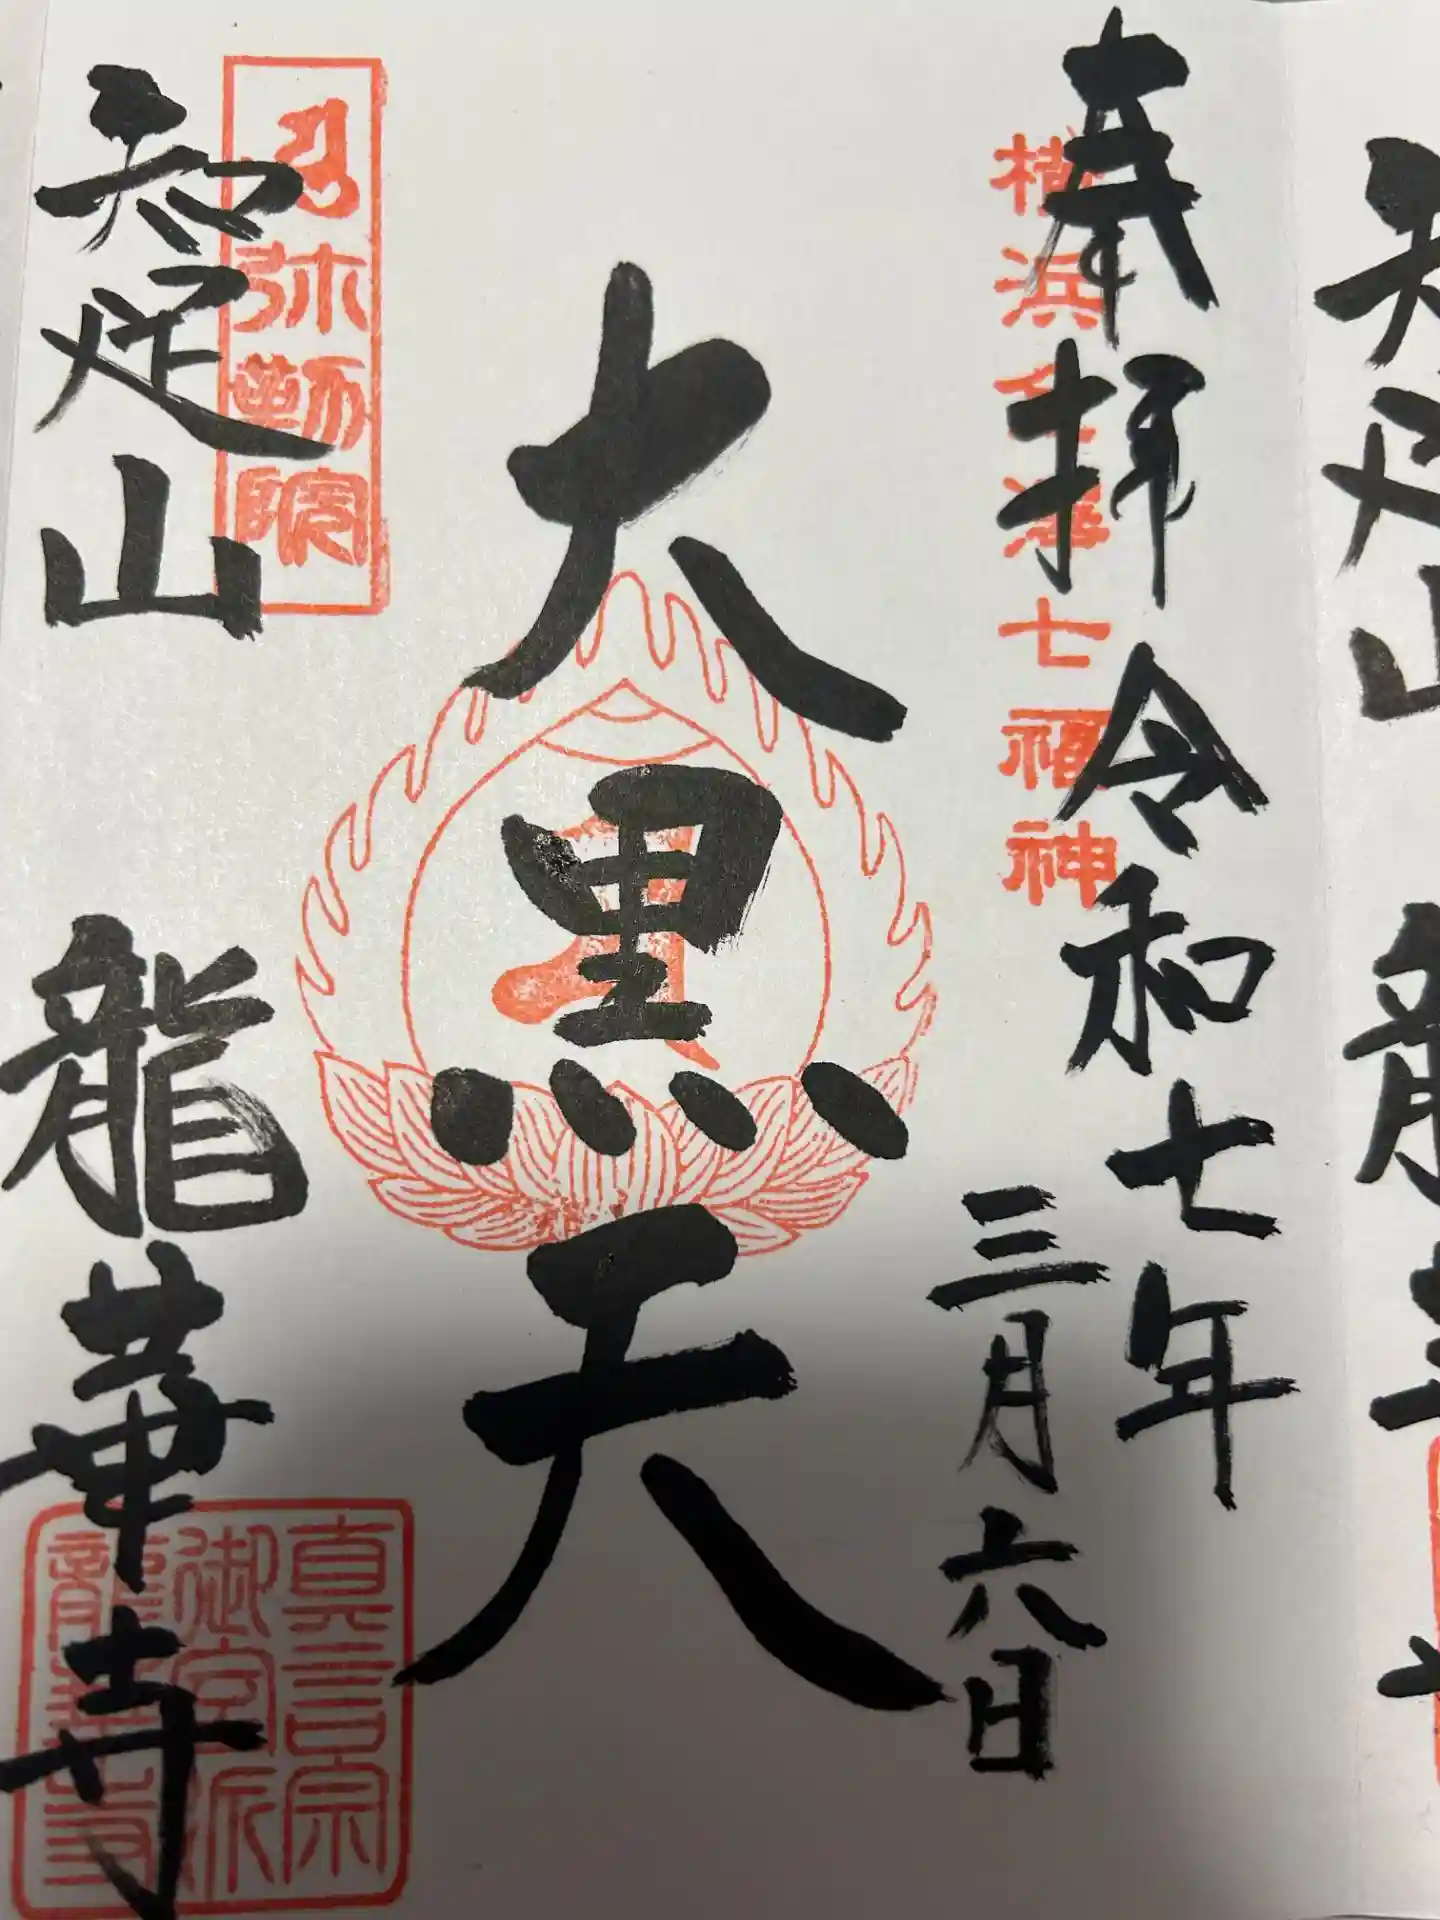 奉拝
令和七年
三月六日
横浜金沢七福神
大黒天
弥勒院
知足山
龍華寺
真言宗
御室派
龍華寺